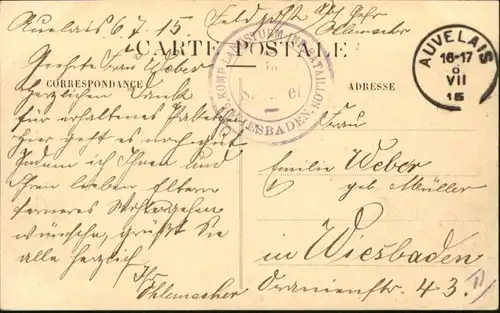 Auvelais 6.7.15. Feldpost
Ohlemacher
CARTE POSTALE
CORRESPONDANCE
ADRESSE
KOMP. LANDSTURM-INF. BATAILLON
WIESBADEN
AUVELAIS
16-17
8
VII
15
Geehrte Frau Weber
Herzlichen Dank
für erhaltenes Paket
hier geht es noch gut
Indem ich Ihnen und
Ihren lieben Eltern
ferneres Wohlergehen
wünsche, grüßt Sie
alle herzlich
Ohlemacher
Frau
Emilie Weber
geb. Müller
in Wiesbaden
Oranienstr 43.
II